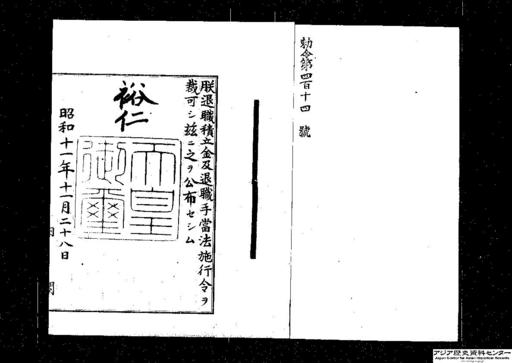 勅令第四百十四號
朕退職積立金及退職手當法施行令ヲ
裁可シ茲ニ之ヲ公布セシム
裕仁
天皇
御璽
昭和十一年十一月二十八日
内閣
アジア歴史資料センター
Japan Center for Asian Historical Records